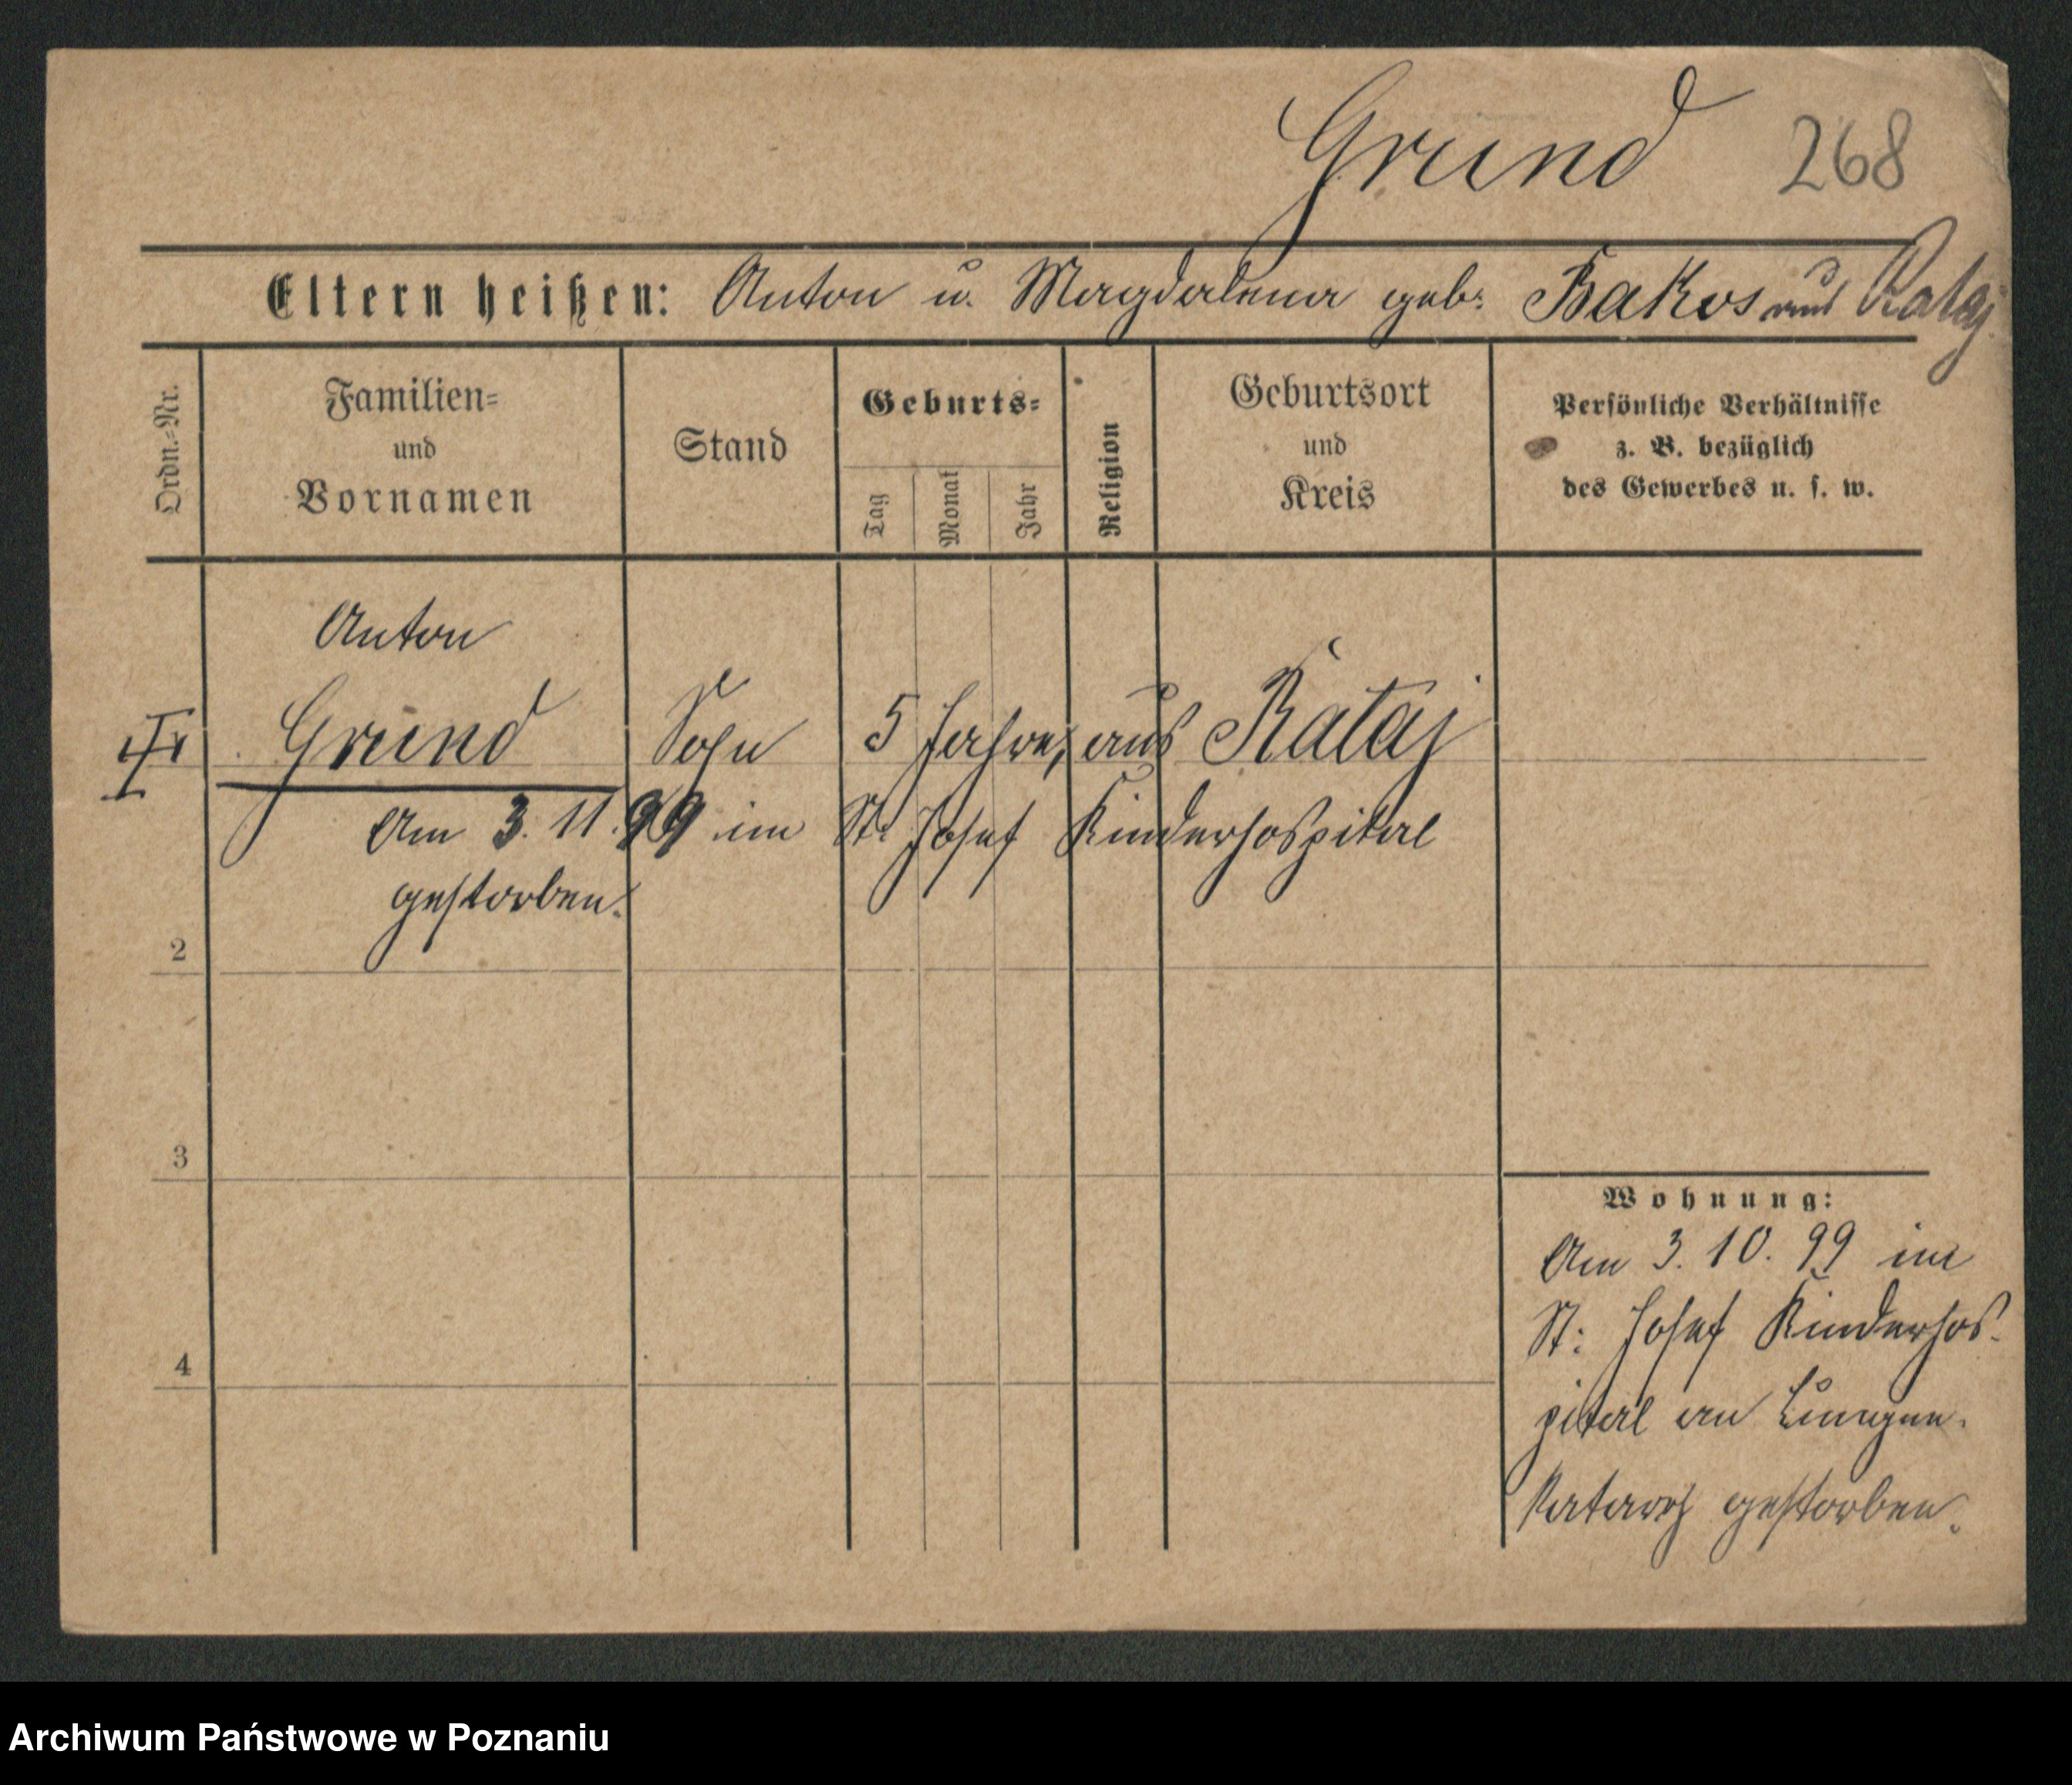 Grund 268
Eltern heißen: Anton u. Magdalena geb: Bakos aus Rataj
Ordn.=Nr.
Familien=
und
Vornamen
Stand
Geburts=
Tag
Monat
Jahr
Religion
Geburtsort
und
Kreis
Persönliche Verhältnisse
z. B. bezüglich
des Gewerbes u. s. w.
Anton
Grund Sohn 5 Jahre, aus Rataj
Am 3. 11. 99 im St. Josef Kinderhospital
gestorben.
2
3
4
Wohnung:
Am 3. 10. 99 im
St: Josef Kinderhos-
pital an Lungen-
katarrh gestorben.
Archiwum Państwowe w Poznaniu